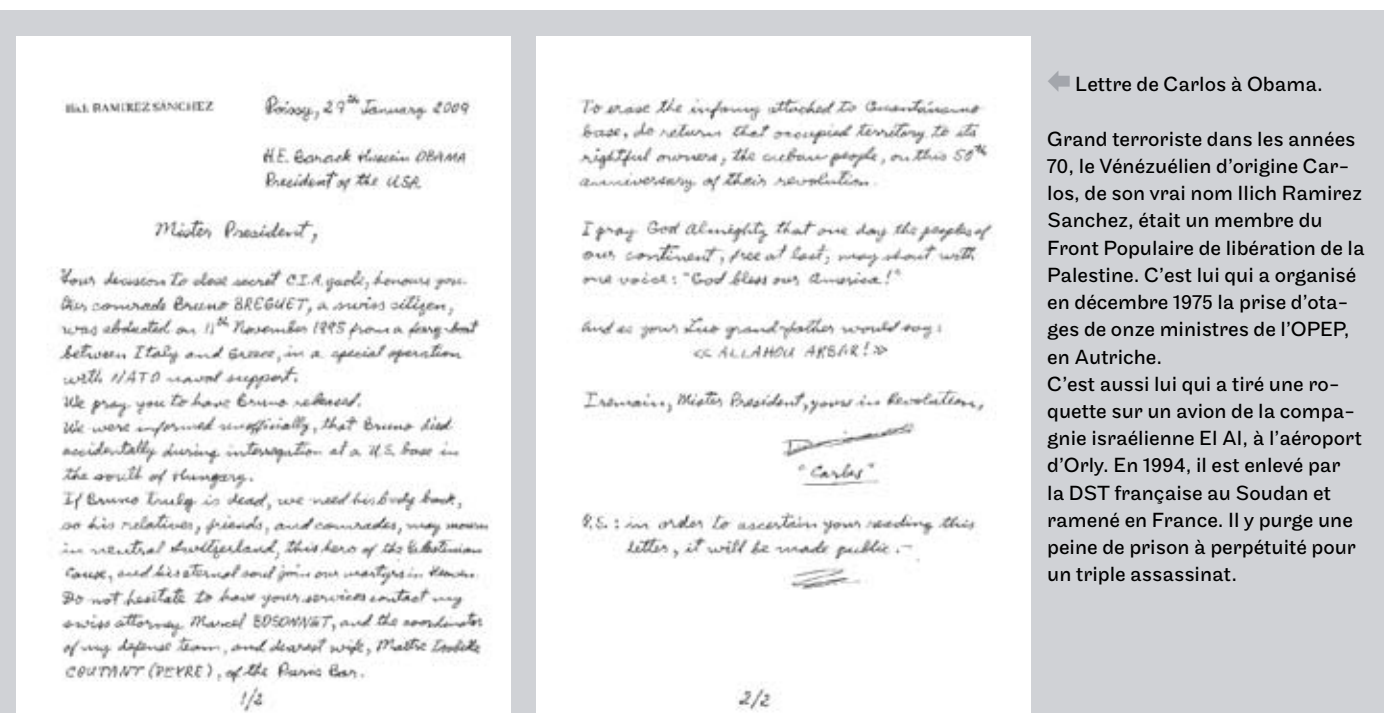 Ilich RAMIREZ SÁNCHEZ
Poissy, 29th January 2009
H.E. Barack Hussein OBAMA
President of the USA
Mister President,
Your decision to close secret C.I.A. gaols, honours you.
Our comrade Bruno BREGUET, a swiss citizen,
was abducted on 11th November 1995 from a ferry-boat
between Italy and Greece, in a special operation
with NATO naval support.
We pray you to have Bruno released.
We were informed unofficially, that Bruno died
accidentally during interrogation at a U.S. base in
the south of Hungary.
If Bruno truly is dead, we need his body back,
so his relatives, friends, and comrades, may mourn
in neutral Switzerland, this hero of the Palestinian
Cause, and his eternal soul join our martyrs in Heaven.
Do not hesitate to have your services contact my
swiss attorney Marcel BOSONNET, and the coordinator
of my defense team, and dearest wife, Maître Isabelle
COUTANT (PEYRE), of the Paris Bar.
1/2
To erase the infamy attached to Guantánamo
base, do return that occupied territory to its
rightful owners, the cuban people, on this 50th
anniversary of their revolution.
I pray God Almighty that one day the peoples of
our continent, free at last, may shout with
one voice: "God bless our America!"
And as your Luo grand-father would say:
<< ALLAHOU AKBAR! >>
I remain, Mister President, yours in Revolution,
"Carlos"
P.S.: in order to ascertain your reading this
letter, it will be made public.-
2/2
Lettre de Carlos à Obama.
Grand terroriste dans les années
70, le Vénézuélien d'origine Car-
los, de son vrai nom Ilich Ramirez
Sanchez, était un membre du
Front Populaire de libération de la
Palestine. C'est lui qui a organisé
en décembre 1975 la prise d'ota-
ges de onze ministres de l'OPEP,
en Autriche.
C'est aussi lui qui a tiré une ro-
quette sur un avion de la compa-
gnie israélienne El Al, à l'aéroport
d'Orly. En 1994, il est enlevé par
la DST française au Soudan et
ramené en France. Il y purge une
peine de prison à perpétuité pour
un triple assassinat.